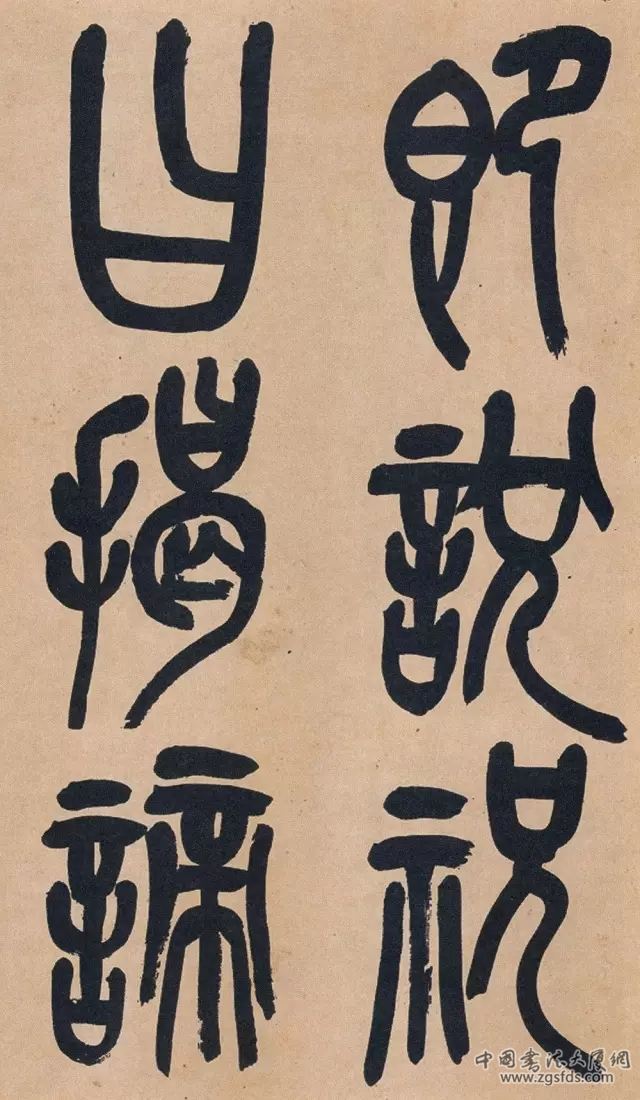 即說祝
曰揭諦
中国书法大厦网
www.zgsfds.com